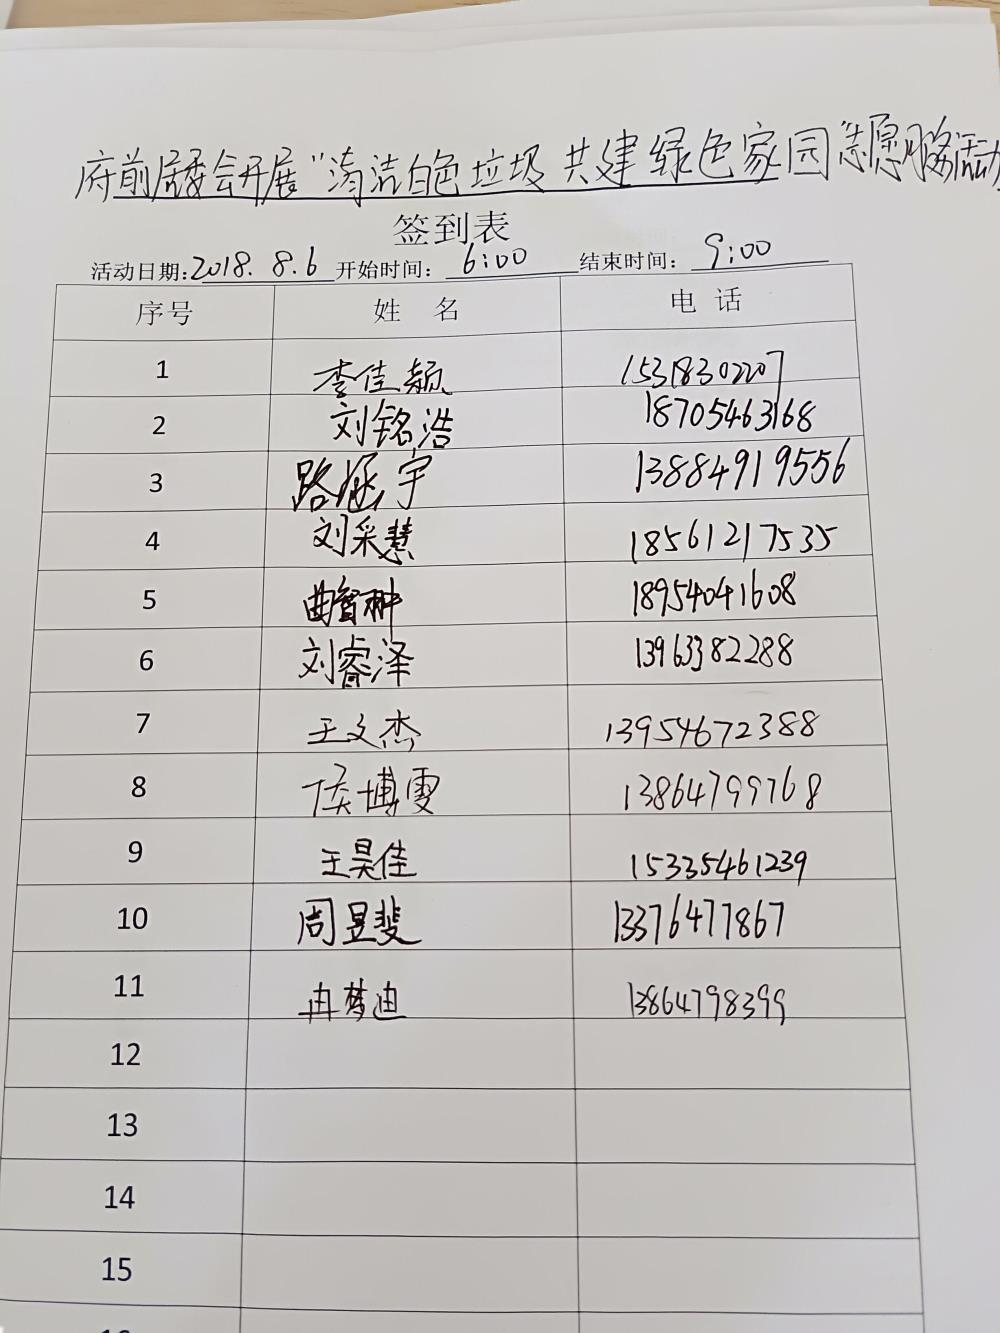 府前居委会开展"清洁白色垃圾 共建绿色家园"志愿服务活动
签到表
活动日期:2018.8.6 开始时间: 6:00 结束时间: 9:00
序号 姓 名 电 话
1 李佳颖 15318302207
2 刘铭浩 18705463168
3 路涵宇 13884919556
4 刘采慧 18561217535
5 曲 18954041608
6 刘睿泽 13963382288
7 王文杰 13954672388
8 侯博雯 13864799768
9 王昊佳 15335461239
10 周昱斐 13376477867
11 冉梦迪 13864798399
12
13
14
15